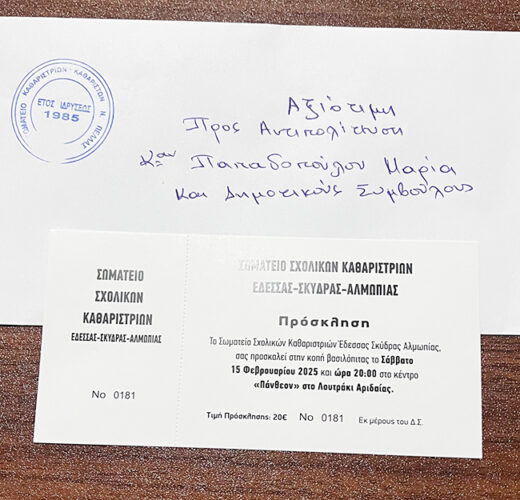 ΣΩΜΑΤΕΙΟ ΚΑΘΑΡΙΣΤΡΙΩΝ - ΚΑΘΑΡΙΣΤΩΝ Ν. ΠΕΛΛΑΣ
ΕΤΟΣ ΙΔΡΥΣΕΩΣ
1985
Αξιότιμη
Προς Αντιπολίτευση
Καν Παπαδοπούλου Μαρία
και Δημοτικούς Συμβούλους
ΣΩΜΑΤΕΙΟ
ΣΧΟΛΙΚΩΝ
ΚΑΘΑΡΙΣΤΡΙΩΝ
ΕΔΕΣΣΑΣ-ΣΚΥΔΡΑΣ-ΑΛΜΩΠΙΑΣ
No 0181
ΣΩΜΑΤΕΙΟ ΣΧΟΛΙΚΩΝ ΚΑΘΑΡΙΣΤΡΙΩΝ
ΕΔΕΣΣΑΣ-ΣΚΥΔΡΑΣ-ΑΛΜΩΠΙΑΣ
Πρόσκληση
Το Σωματείο Σχολικών Καθαριστριών Έδεσσας Σκύδρας Αλμωπίας,
σας προσκαλεί στην κοπή βασιλόπιτας το Σάββατο
15 Φεβρουαρίου 2025 και ώρα 20:00 στο κέντρο
«Πάνθεον» στο Λουτράκι Αριδαίας.
Τιμή Πρόσκλησης: 20€ No 0181 Εκ μέρους του Δ.Σ.